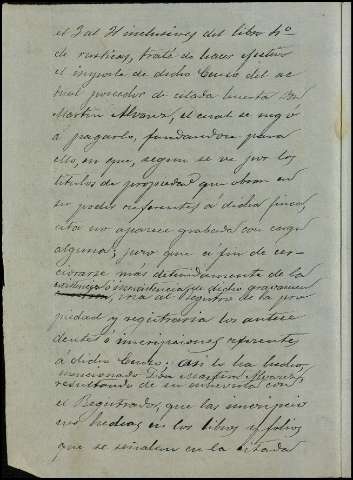 el 3 al 31 inclusives del libro 4º
de rusticas, trató de hacer efectivo
el importe de dicho Censo del ac-
tual poseedor de citada huerta Don
Martin Alvarez, el cual se negó
á pagarlo, fundandose para
ello, en que, segun se ve por los
titulos de propiedad que obran en
su poder referentes á dicha finca,
esta no aparece grabada con carga
alguna; pero que á fin de cer-
ciorarse más detenidamente de la
existencia ó inexistencia de dicho gravamen
iria al Registro de la pro-
piedad y registraria los antece-
dentes ó inscripciones referentes
á dicho Censo. Así lo ha hecho
mencionado Don Martin Alvarez,
resultando de su entrevista con
el Registrador, que las inscripcio
nes hechas en los libros y folios
que se señalan en la citada